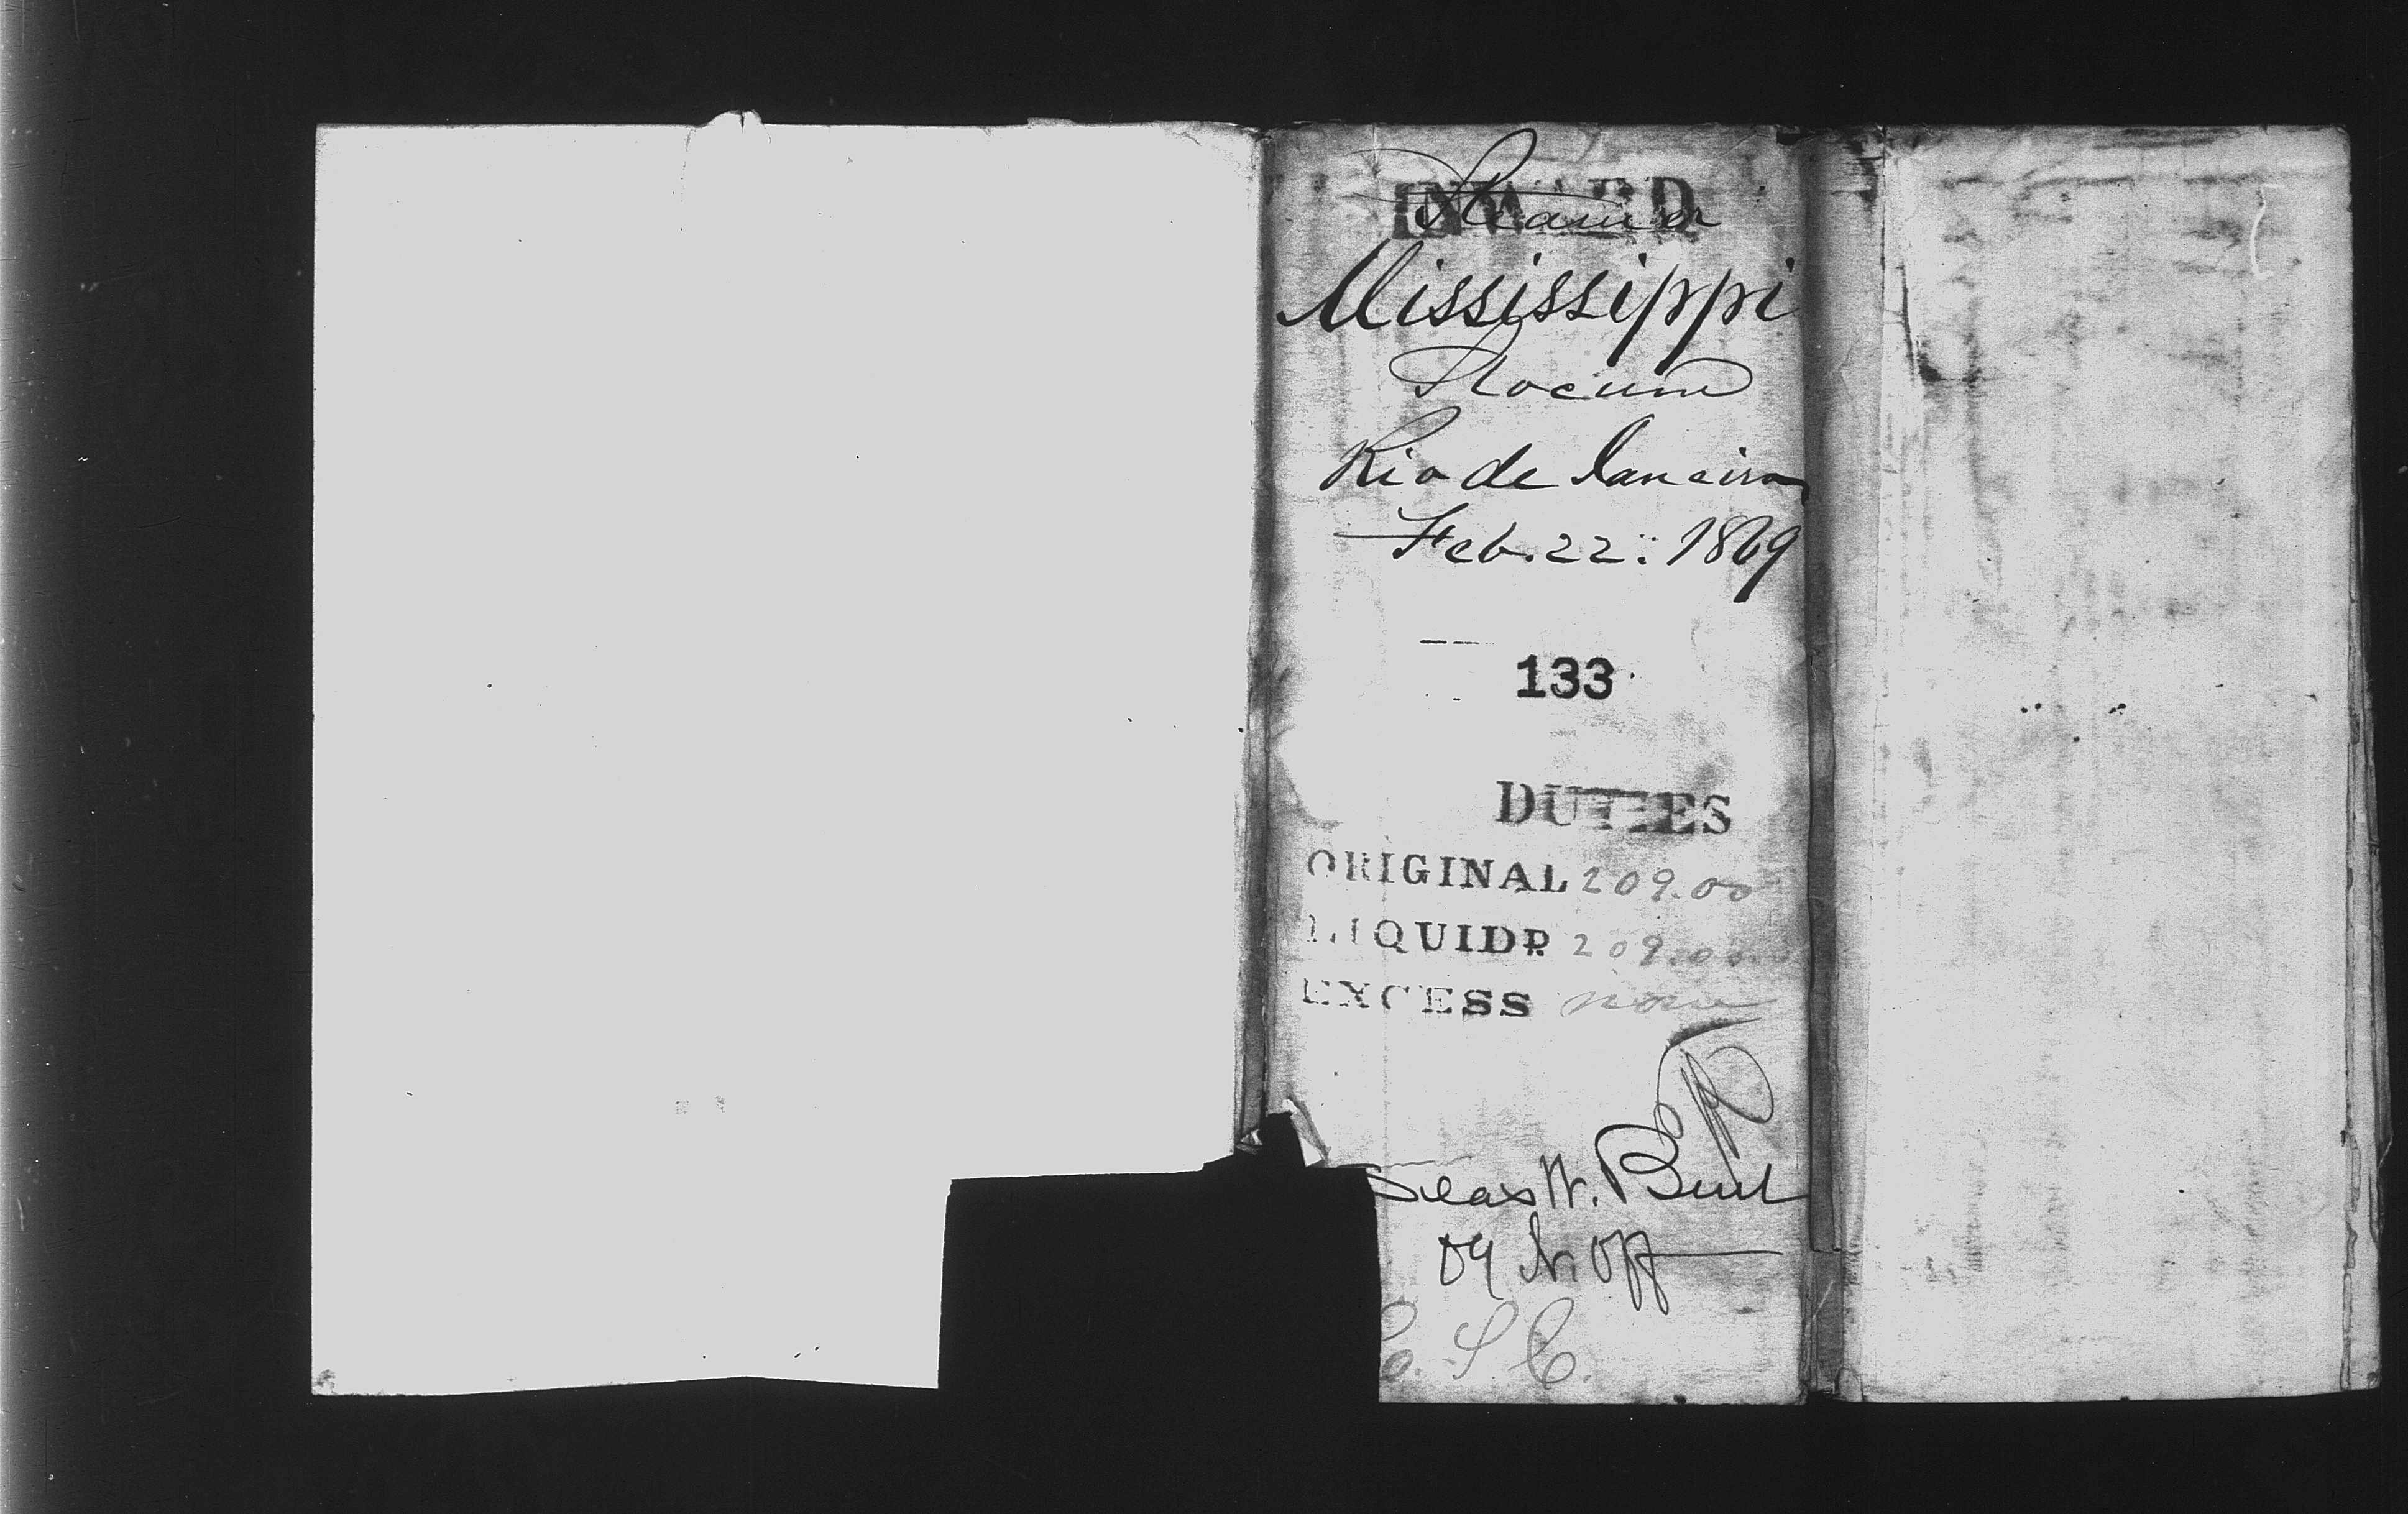 INWARD
Steamer
Mississippi
Slocum
Rio de Janeiro
Feb. 22: 1869
133
DUTIES
ORIGINAL 209.00
LIQUIDD. 209.00
EXCESS none
Silas W. Burt
Off
S C.